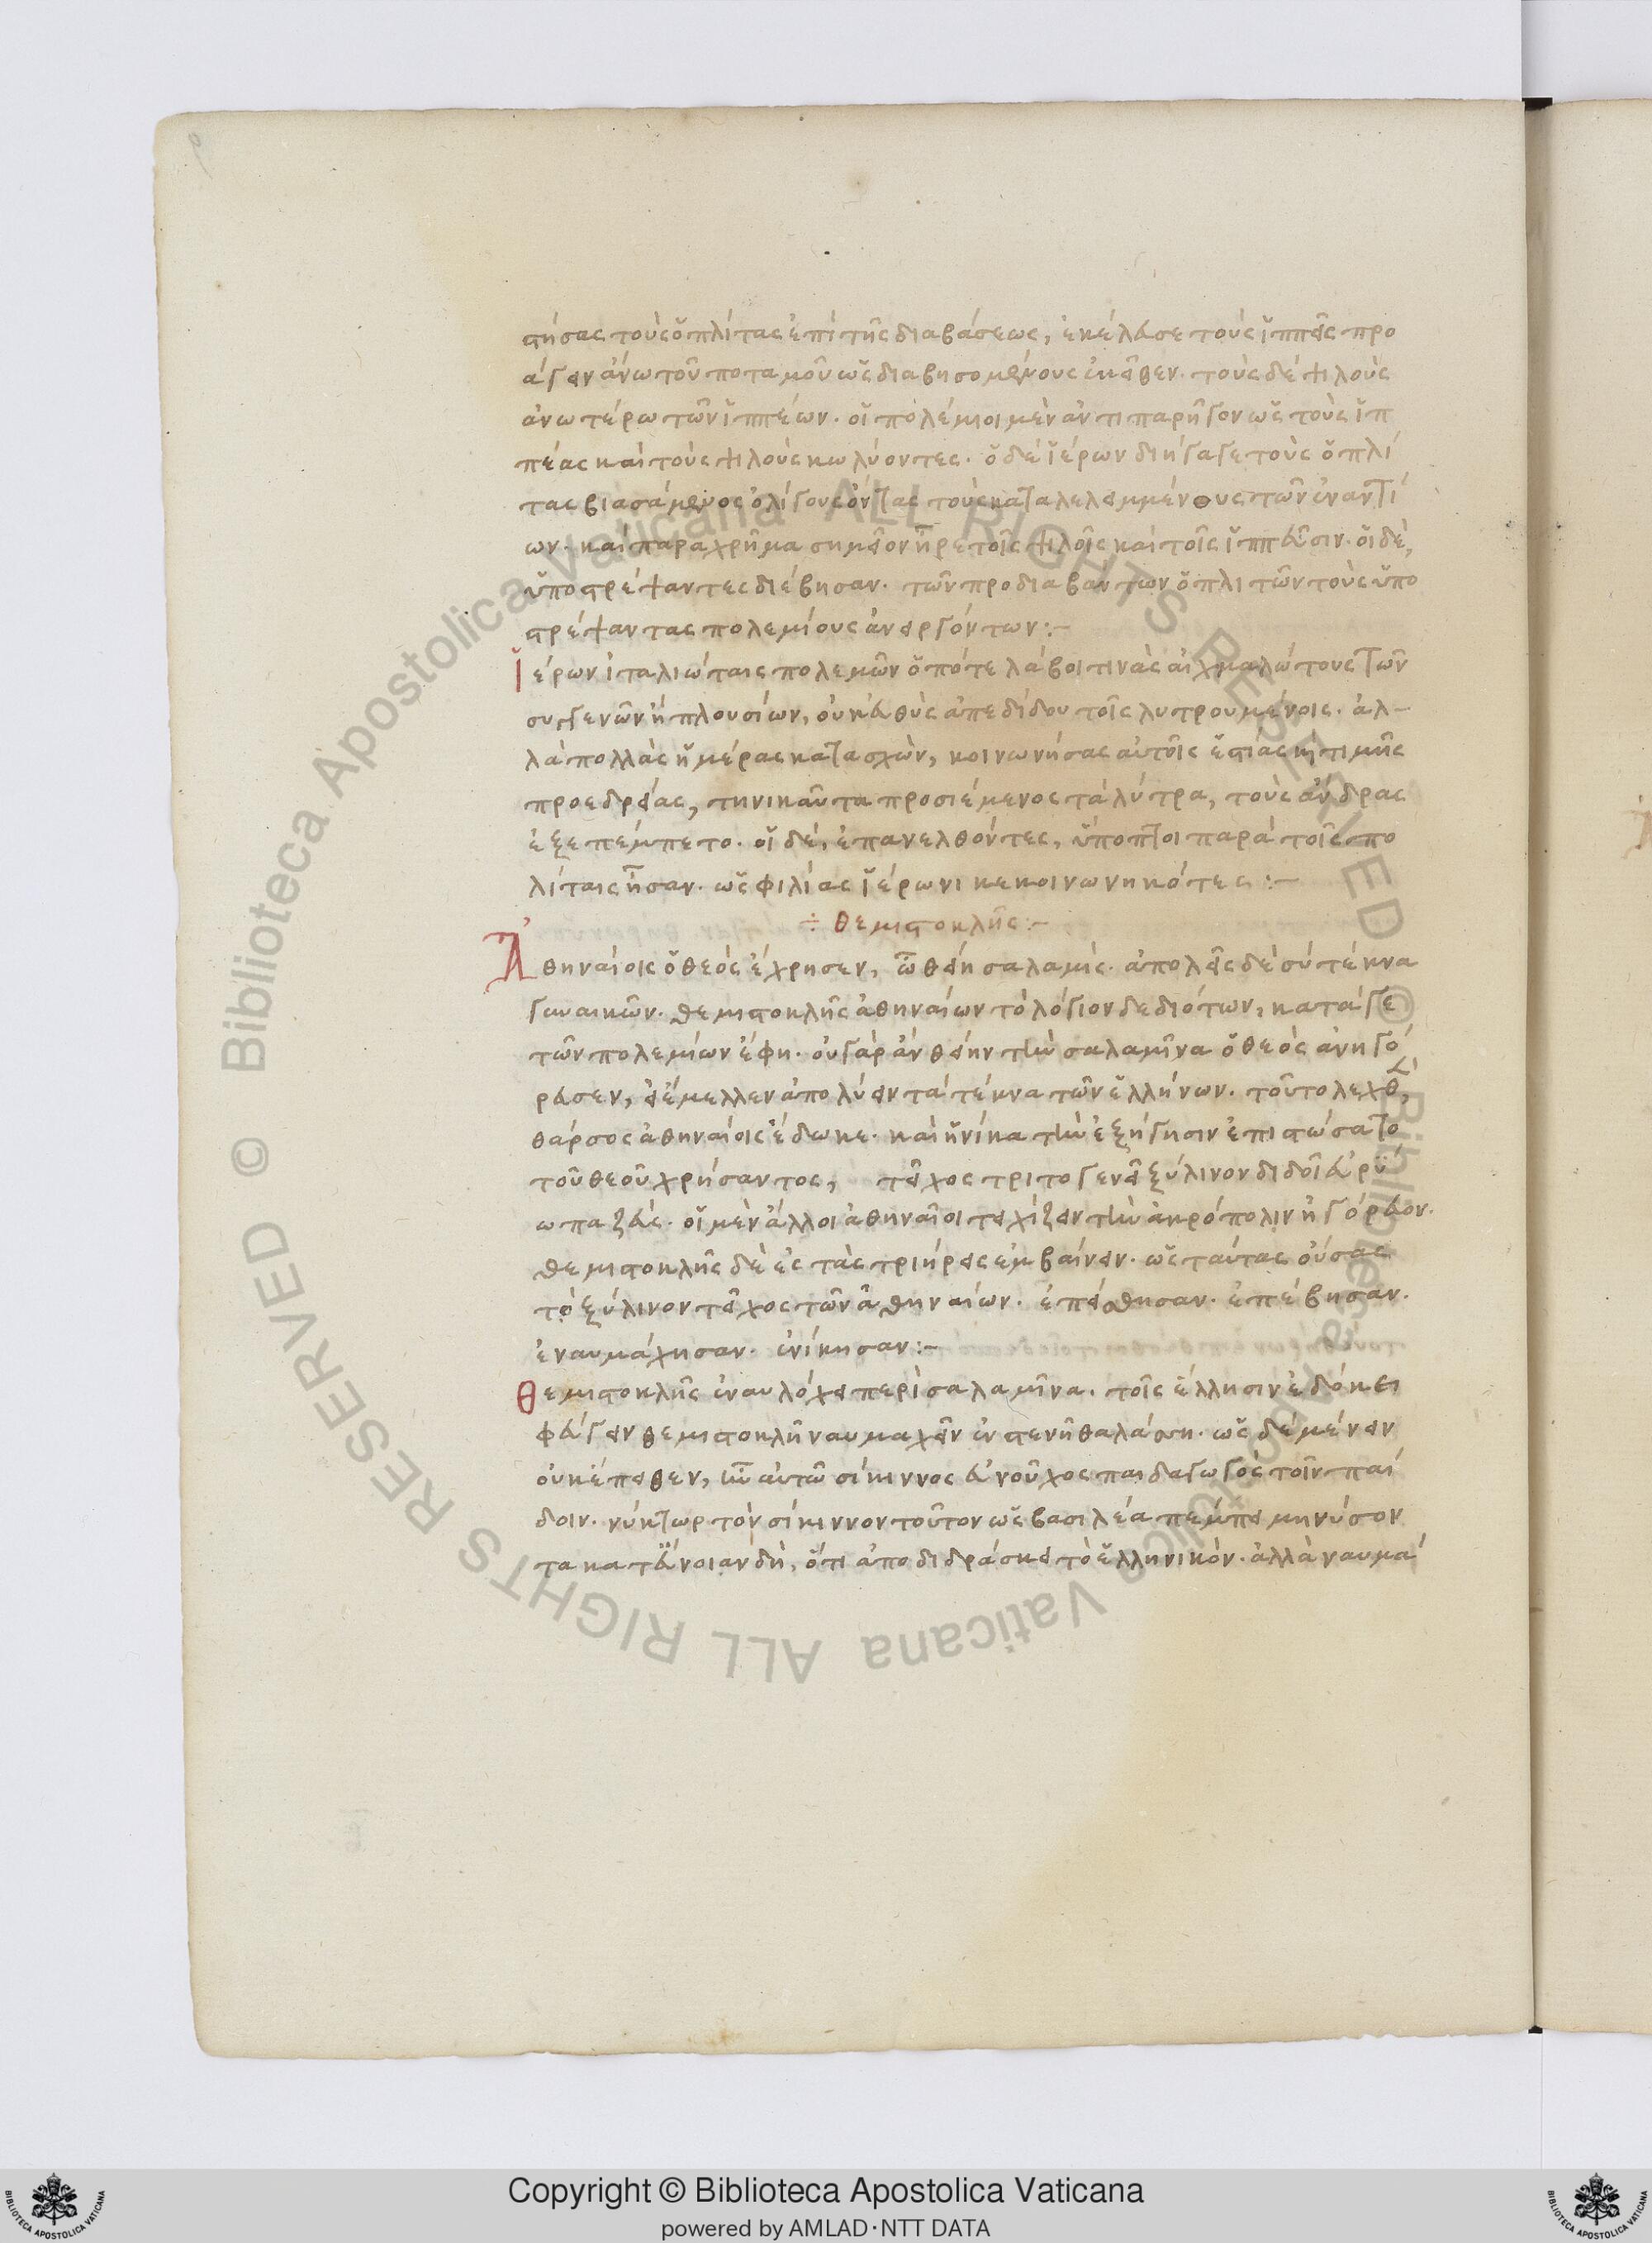 στήσας τοὺς ὁπλίτας ἐπὶ τῆς διαβάσεως, ἐκέλευσε τοὺς ἱππεῖς προ
άγειν ἄνω τοῦ ποταμοῦ ὡς διαβησομένους ἐκεῖθεν. τοὺς δὲ ψιλοὺς
ἀνωτέρω τῶν ἱππέων. οἱ πολέμιοι μὲν ἀντιπαρῆγον ὡς τοὺς ἱπ
πέας καὶ τοὺς ψιλοὺς κωλύοντες. ὁ δὲ ἱέρων διήγαγε τοὺς ὁπλί
τας βιασάμενος ὀλίγους ὄντας τοὺς καταλελειμμένους τῶν ἐναντί
ων. καὶ παραχρῆμα σημεῖον ἦρε τοῖς ψιλοῖς καὶ τοῖς ἱππεῦσιν. οἱ δὲ,
ὑποστρέψαντες διέβησαν. τῶν προδιαβάντων ὁπλιτῶν τοὺς ὑπο
στρέψαντας πολεμίους ἀνειργόντων:-
ἱέρων ἰταλιώταις πολεμῶν ὁπότε λάβοι τινὰς αἰχμαλώτους τῶν
συγγενῶν ἢ πλουσίων, οὐκ εὐθὺς ἀπεδίδου τοῖς λυτρουμένοις. ἀλ-
λὰ πολλὰς ἡμέρας κατασχὼν, κοινωνήσας αὐτοῖς ἑστίας κὶ τιμῆς
προεδρείας, τηνικαῦτα προσιέμενος τὰ λύτρα, τοὺς ἄνδρας
ἐξεπέμπετο. οἱ δὲ, ἐπανελθόντες, ὕποπτοι παρὰ τοῖς πο
λίταις ἦσαν. ὡς φιλίας ἱέρωνι κεκοινωνηκότες :-
÷ θεμιστοκλῆς :-
Ἀθηναίοις ὁ θεὸς ἔχρησεν, ὦ θείη σαλαμὶς. ἀπολεῖς δὲ σὺ τέκνα
γυναικῶν. θεμιστοκλῆς ἀθηναίων τὸ λόγιον δεδιότων, κατά γε
τῶν πολεμίων ἔφη. οὐ γὰρ ἂν θείην τὴν σαλαμῖνα ὁ θεὸς ἀνηγό
ρευσεν, εἰ ἔμελλεν ἀπολύειν τὰ τέκνα τῶν ἑλλήνων. τοῦτο λεχθὲ,
θάρσος ἀθηναίοις ἔδωκε. καὶ ἡνίκα τὴν ἐξήγησιν ἐπιστώσατο
τοῦ θεοῦ χρήσαντος, τεῖχος τριτογενεῖ ξύλινον διδοῖ εὐρύ
ωπα ζεύς. οἱ μὲν ἄλλοι ἀθηναῖοι τειχίζειν τὴν ἀκρόπολιν ἠγόρευον.
θεμιστοκλῆς δὲ ἐς τὰς τριήρεις ἐμβαίνειν. ὡς ταύτας οὔσας
τὸ ξύλινον τεῖχος τῶν ἀθηναίων. ἐπείσθησαν. ἐπέβησαν.
ἐναυμάχησαν. ἐνίκησαν:-
θεμιστοκλῆς ἐναυλόχει περὶ σαλαμῖνα. τοῖς ἕλλησιν ἐδόκει
φεύγειν θεμιστοκλῆ ναυμαχεῖν ἐν στενῇ θαλάσσῃ. ὡς δὲ μένειν
οὐκ ἔπειθεν, ἦν αὐτῶ σίκιννος εὐνοῦχος παιδαγωγὸς τοῖν παί
δοιν. νύκτωρ τὸν σίκιννον τοῦτον ὡς βασιλέα πέμπει μηνύσον
τα κατ' εὔνοιαν δὴ, ὅτι ἀποδιδράσκει τὸ ἑλληνικόν. ἀλλὰ ναυμά
Copyright © Biblioteca Apostolica Vaticana
powered by AMLAD·NTT DATA